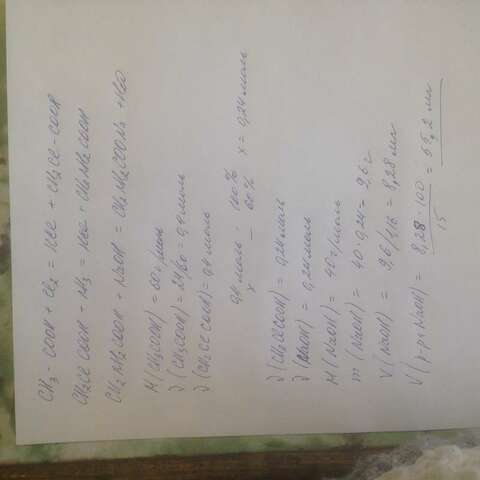 CH3 - COOH + Cl2 = HCl + CH2Cl - COOH
CH2Cl COOH + NH3 = HCl + CH2NH2COOH
CH2NH2COOH + NaOH = CH2NH2COONa + H2O
M(CH3COOH) = 60 г/моль
ν(CH3COOH) = 24/60 = 0,4 моль
ν(CH2Cl COOH) = 0,4 моль
0,4 моль - 100%
x - 60% x = 0,24 моль
ν(CH2ClCOOH) = 0,24 моль
ν(NaOH) = 0,24 моль
M(NaOH) = 40 г/моль
m(NaOH) = 40 · 0,24 = 9,6 г
V(NaOH) = 9,6/1,16 = 8,28 мл
V(р-ра NaOH) = 8,28 · 100 / 15 = 55,2 мл